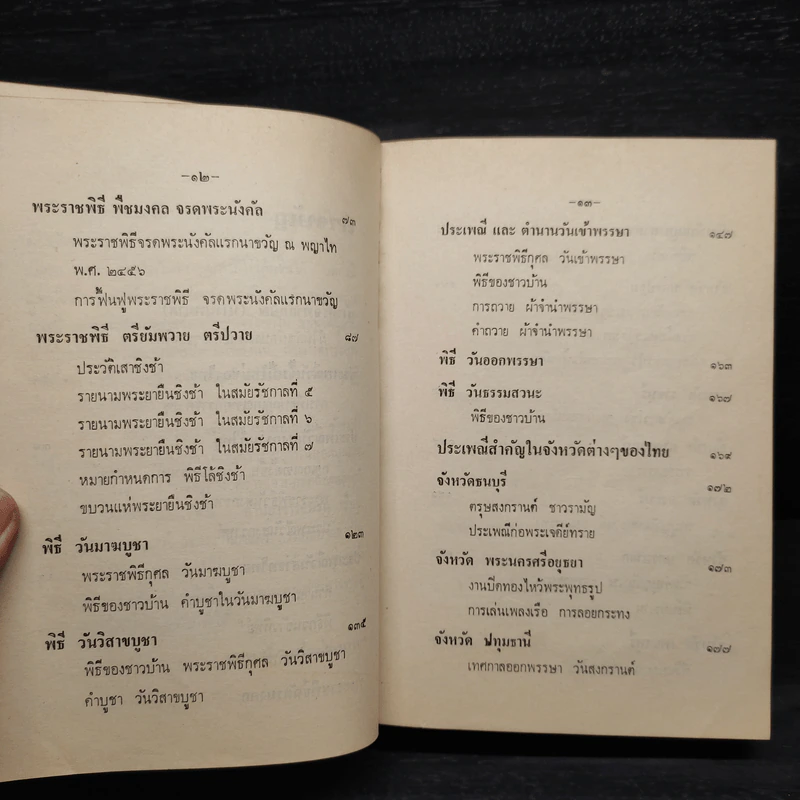 -๑๒-
พระราชพิธี พืชมงคล จรดพระนังคัล ๗๓
พระราชพิธีจรดพระนังคัลแรกนาขวัญ ณ พญาไท
พ.ศ. ๒๔๕๖
การฟื้นฟูพระราชพิธี จรดพระนังคัลแรกนาขวัญ
พระราชพิธี ตรียัมพวาย ตรีปวาย ๘๗
ประวัติเสาชิงช้า
รายนามพระยายืนชิงช้า ในสมัยรัชกาลที่ ๕
รายนามพระยายืนชิงช้า ในสมัยรัชกาลที่ ๖
รายนามพระยายืนชิงช้า ในสมัยรัชกาลที่ ๗
หมายกำหนดการ พิธีโล้ชิงช้า
ขบวนแห่พระยายืนชิงช้า
พิธี วันมาฆบูชา ๑๒๓
พระราชพิธีกุศล วันมาฆบูชา
พิธีของชาวบ้าน คำบูชาในวันมาฆบูชา
พิธี วันวิสาขบูชา ๑๓๕
พิธีของชาวบ้าน พระราชพิธีกุศล วันวิสาขบูชา
คำบูชา วันวิสาขบูชา
-๑๓-
ประเพณี และ ตำนานวันเข้าพรรษา ๑๔๗
พระราชพิธีกุศล วันเข้าพรรษา
พิธีของชาวบ้าน
การถวาย ผ้าจำนำพรรษา
คำถวาย ผ้าจำนำพรรษา
พิธี วันออกพรรษา ๑๖๓
พิธี วันธรรมสวนะ ๑๖๗
พิธีของชาวบ้าน
ประเพณีสำคัญในจังหวัดต่างๆของไทย ๑๖๙
จังหวัดธนบุรี ๑๗๒
ตรุษสงกรานต์ ชาวรามัญ
ประเพณีก่อพระเจดีย์ทราย
จังหวัด พระนครศรีอยุธยา ๑๗๓
งานปิดทองไหว้พระพุทธรูป
การเล่นเพลงเรือ การลอยกระทง
จังหวัด ปทุมธานี ๑๗๗
เทศกาลออกพรรษา วันสงกรานต์